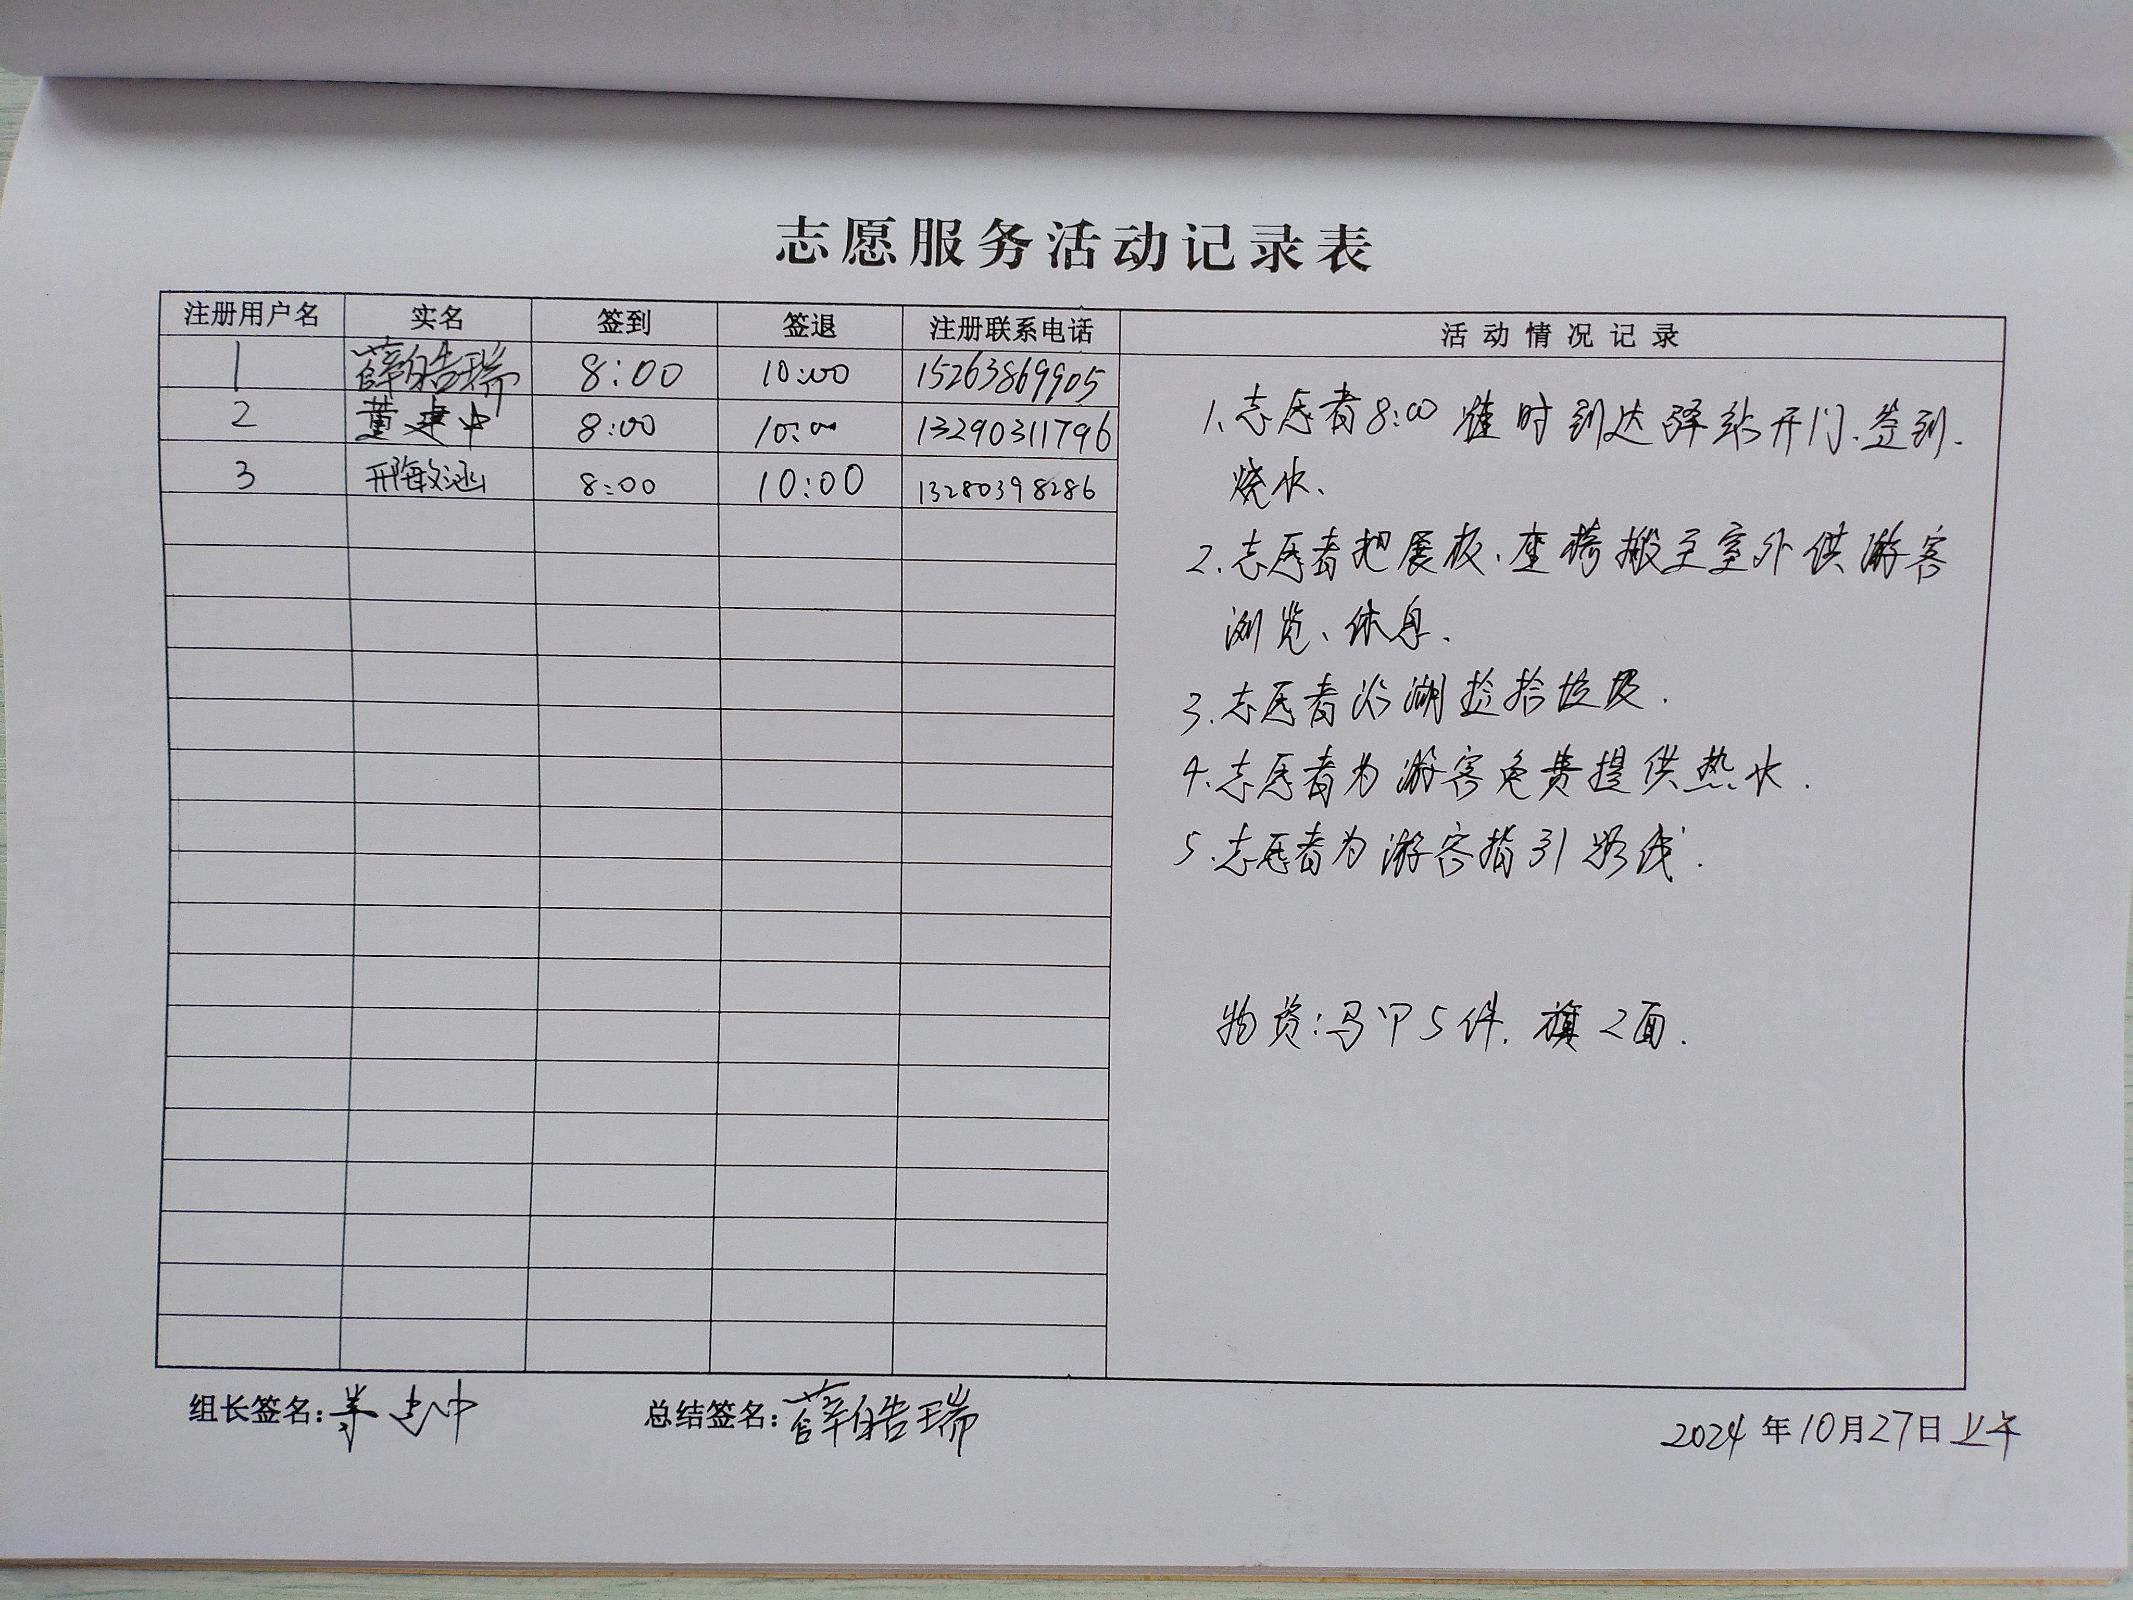 志愿服务活动记录表
注册用户名 实名 签到 签退 注册联系电话 活动情况记录
1 薛皓瑞 8:00 10:00 15263869905
2 董建中 8:00 10:00 13290311796
3 邢敏涵 8:00 10:00 13280398286
1.志愿者8:00准时到达驿站开门、签到.
烧水.
2.志愿者把展板、座椅搬至室外供游客
浏览、休息.
3.志愿者沿湖捡拾垃圾.
4.志愿者为游客免费提供热水.
5.志愿者为游客指引路线.
物资:马甲5件.旗2面.
组长签名: 总结签名:薛皓瑞
2024年10月27日上午